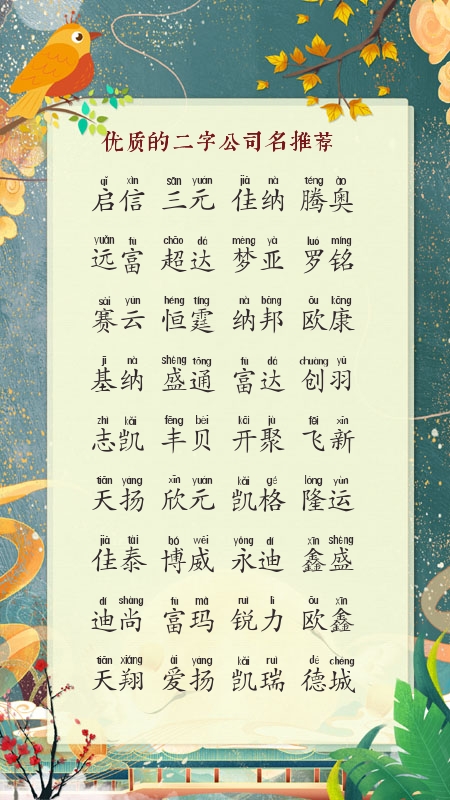 优质的二字公司名推荐
qǐ xìn sān yuán jiā nà téng ào
启信 三元 佳纳 腾奥
yuǎn fù chāo dá mèng yà luó míng
远富 超达 梦亚 罗铭
sài yún héng tíng nà bāng ōu kāng
赛云 恒霆 纳邦 欧康
jī nà shèng tōng fù dá chuàng yǔ
基纳 盛通 富达 创羽
zhì kǎi fēng bèi kāi jù fēi xīn
志凯 丰贝 开聚 飞新
tiān yáng xīn yuán kǎi gé lóng yùn
天扬 欣元 凯格 隆运
jiā tài bó wēi yǒng dí xīn shèng
佳泰 博威 永迪 鑫盛
dí shàng fù mǎ ruì lì ōu xīn
迪尚 富玛 锐力 欧鑫
tiān xiáng ài yáng kǎi ruì dé chéng
天翔 爱扬 凯瑞 德城